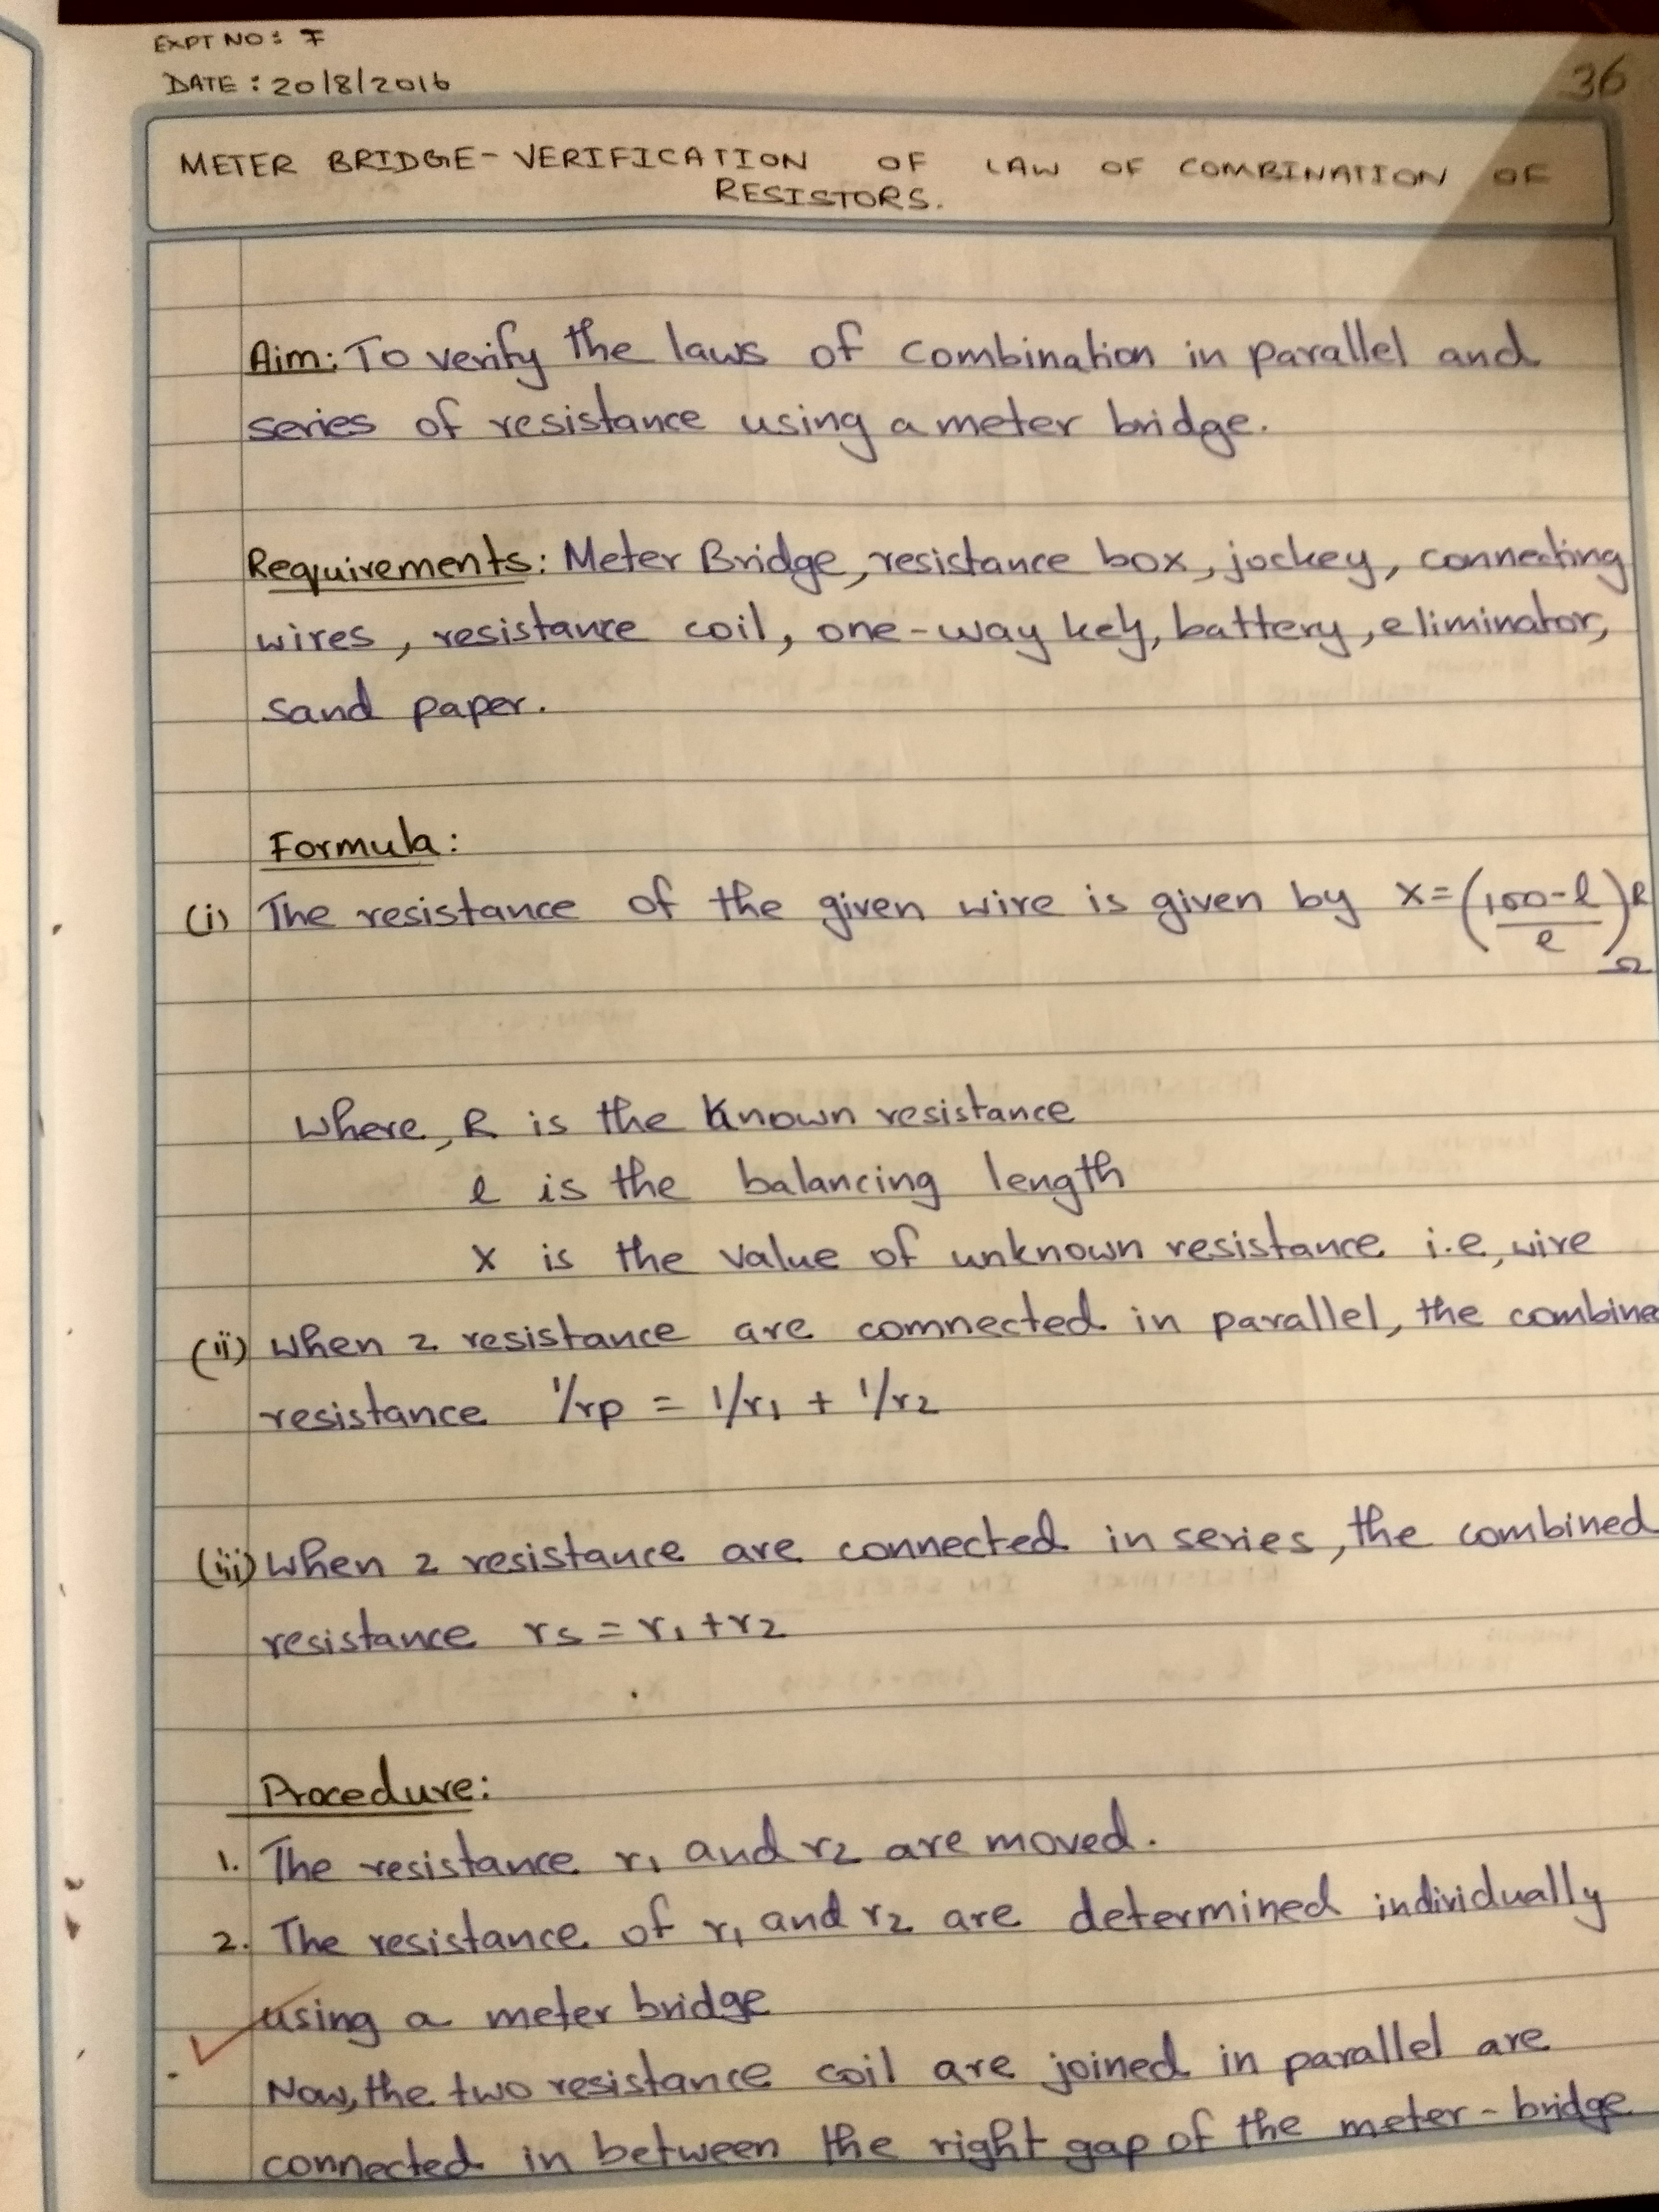 EXPT NO: 7
DATE: 20/8/2016
36
METER BRIDGE-VERIFICATION OF LAW OF COMBINATION OF
RESISTORS.
Aim: To verify the laws of combination in parallel and
series of resistance using a meter bridge.
Requirements: Meter Bridge, resistance box, jockey, connecting
wires, resistance coil, one-way key, battery, eliminator,
sand paper.
Formula:
(i) The resistance of the given wire is given by X=(100-l/l)R Ω
Where, R is the known resistance
l is the balancing length
X is the value of unknown resistance i.e, wire
(ii) When 2 resistance are comnected in parallel, the combine
resistance 1/rp = 1/r1 + 1/r2
(iii) When 2 resistance are connected in series, the combined
resistance rs = r1 + r2
Procedure:
1. The resistance r1 and r2 are moved.
2. The resistance of r1 and r2 are determined individually
using a meter bridge
Now, the two resistance coil are joined in parallel are
connected in between the right gap of the meter-bridge